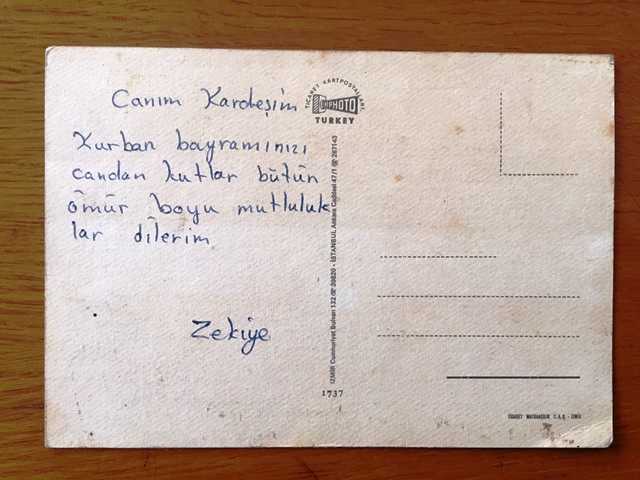 Canım Kardeşim
Kurban bayramınızı
candan kutlar bütün
ömür boyu mutluluk
lar dilerim
Zekiye
TİCARET KARTPOSTALLARI
TURKEY
İZMİR Cumhuriyet Bulvarı 132 ☎ 39820 - İSTANBUL Ankara Caddesi 47/1 ☎ 263143
1737
TİCARET MATBAACILIK T.A.Ş. - İZMİR